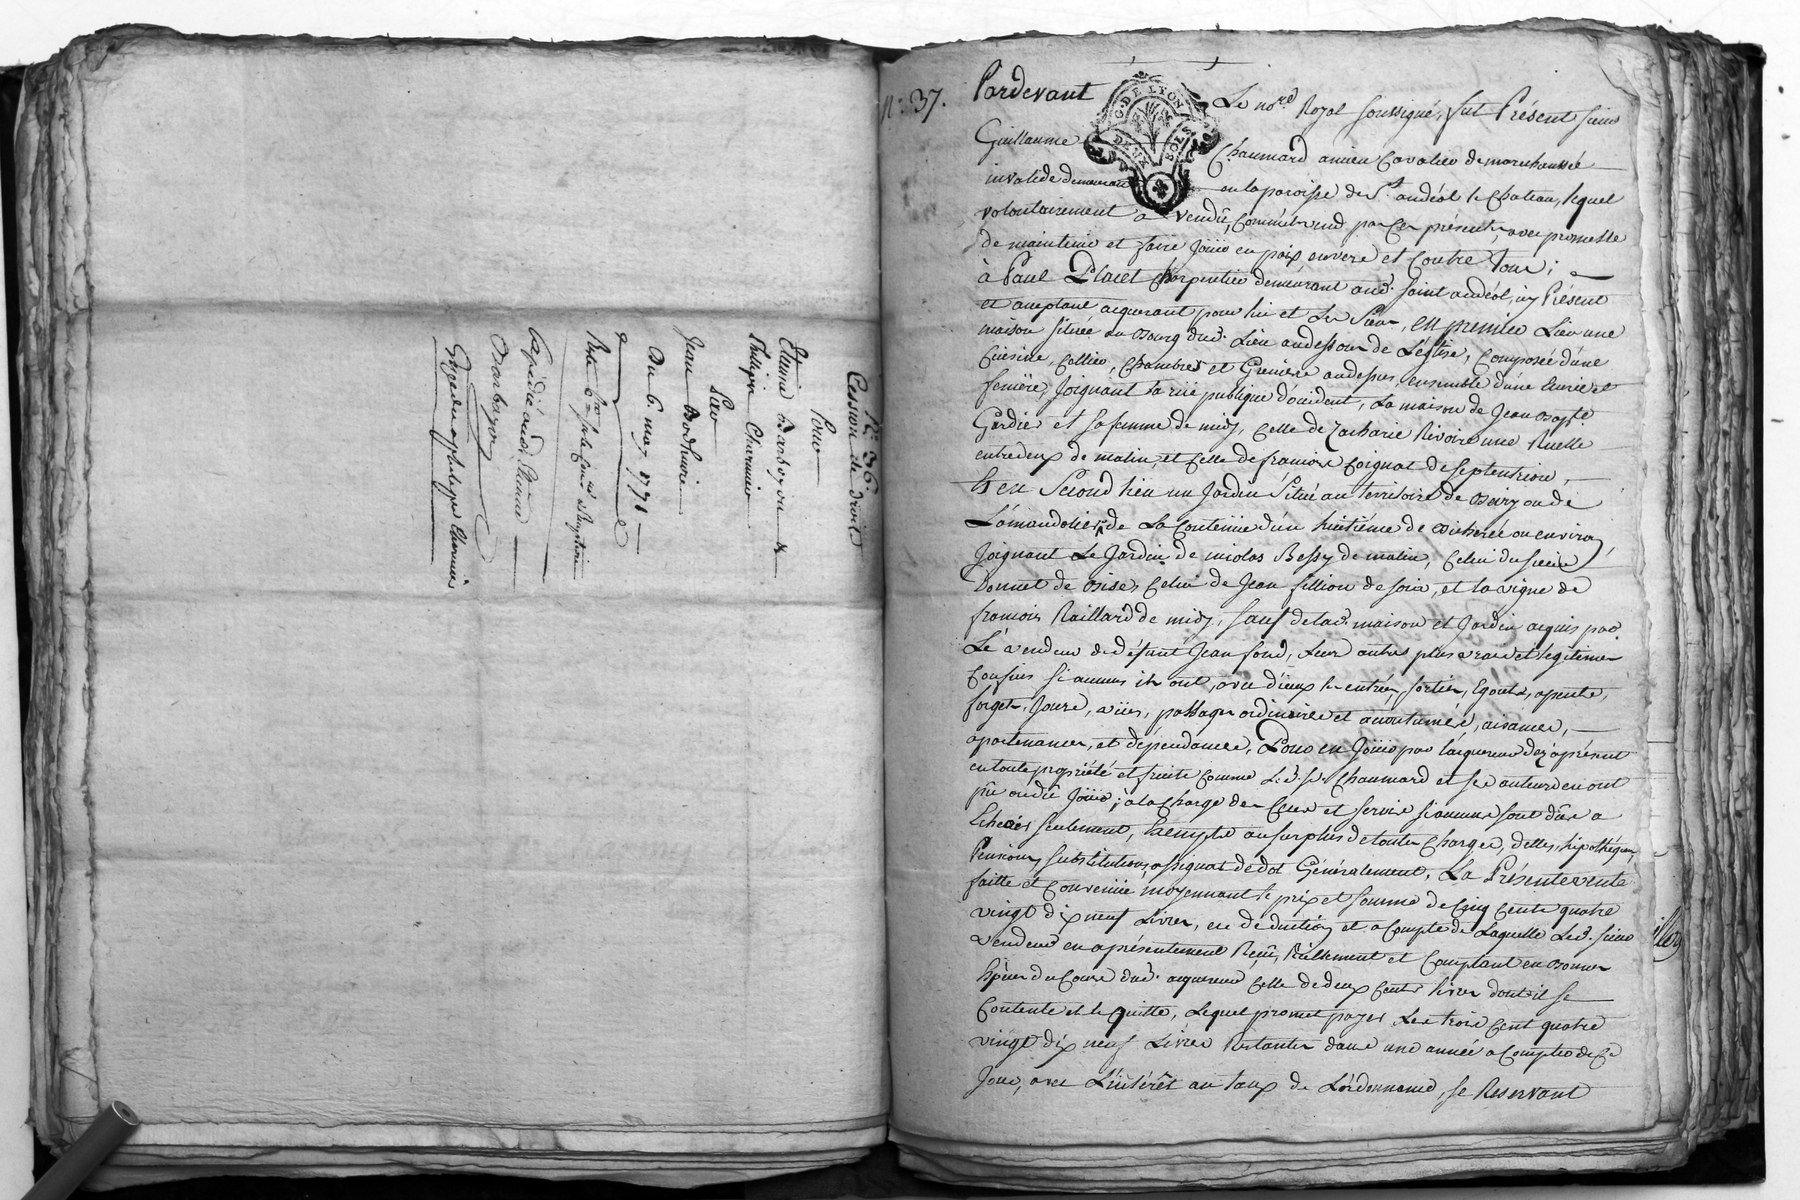 N.° 36.
Cession de droits
Pour
Etienne Barbezon &
Philippe Charmier
Par
Jean Bothurie
Du 6. may 1791
Expédié aud. Etienne
Barbezon
N.° 37. Pardevant Le no.re Royal soussigné, fut Présent sieur
G. DE LYON
DEUX SOLS
Guillaume Chaumard ancien Cavalier de marechaussée
invalide demeurant en la paroisse de S.t andéol le Chateau, lequel
volontairement a vendû, Comm'il vend par Ces présentes, avec promesse
de maintenir et faire Joüir en paix envers et Contre tous;
à Paul Placet Charpentier demeurant aud. Saint andéol, icy Présent
et aceptant acquerant pour lui et Les Siens, En premier Lieu une
maison Située au Bourg dud. Lieu audessous de L'eglise, Composée d'une
Cuisine, Cellier, Chambres et Greniers audessus, ensemble d'une Ecurie et
feniere, Joignant la rüe publique d'occident, La maison de Jean Bapt.e
Gardier et sa femme de midy, Celle de Zacharie Rivoire une Ruelle
entredeux de matin, et Celle de francois Coignat de septentrion,
Et en Second lieu un Jardin Situé au territoire de ou de
L'amandolier, de La Contenüe d'un huitième de Bicherée ou environ,
Joignant Le Jardin de nicolas Bessy de matin, Celui du sieur
Bonnet de Bise, Celui de Jean fillion de soir, et La vigne de
francois Raillard de midy, sauf de lad. maison et Jardin acquis par
Le vendeur de défunt Jean fond, Leurs autres plus vrais et legitimes
Confins si aucuns ils ont, avec d'iceux les entrées, sorties, Egouts,
forgets, Jours, vües, passages ordinaires et acoutumés, aisances,
apartenances, et dépendances, Pour en Joüir par l'acquereur dez aprésent
en toute propriété et fruits Comme Led. Sr. Chaumard et ses auteurs en ont
pû ou dû Joüir; à la Charge des Cens et servis si aucuns sont dûs a
Echeoir seulement, Exempte au surplus de toutes Charges, dettes, hipothéques,
Pensions, substitutions, assignat de dot Généralement, La Présente vente
faitte et Convenüe moyennant le prix et somme de Cinq Cents quatre
vingt dix neuf Livres, en déduction et acompte de Laquelle Led. sieur
vendeur en a présentement Reçu, Réellement et Comptant en Bonnes
Espèces du Cours dud. acquereur Celle de deux Cents Livres dont il se
Contente et le quitte, Lequel promet payer Les trois Cent quatre
vingt dix neuf Livres Restantes dans une année a Compter de Ce
Jour, avec L'intérêt au taux de L'ordonnance, se Reservant